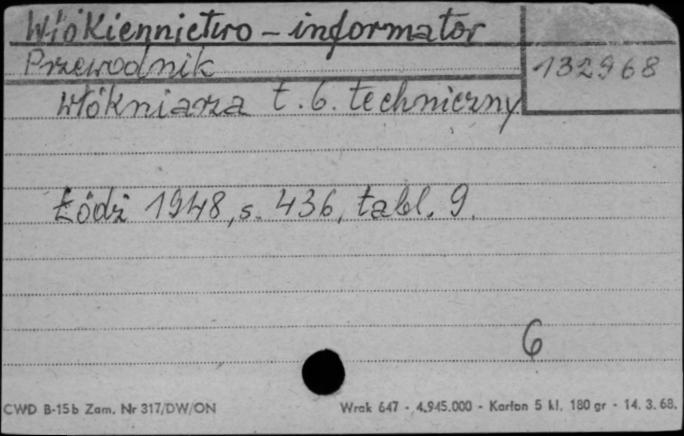 Włókiennictwo - informator
Przewodnik
132968
Włókniarza t. 6. techniczny
Łódź 1948, s. 436, tabl. 9.
6
CWD B-15b Zam. Nr 317/DW/ON
Wrak 647 - 4.945.000 - Karton 5 kl. 180 gr - 14. 3. 68.